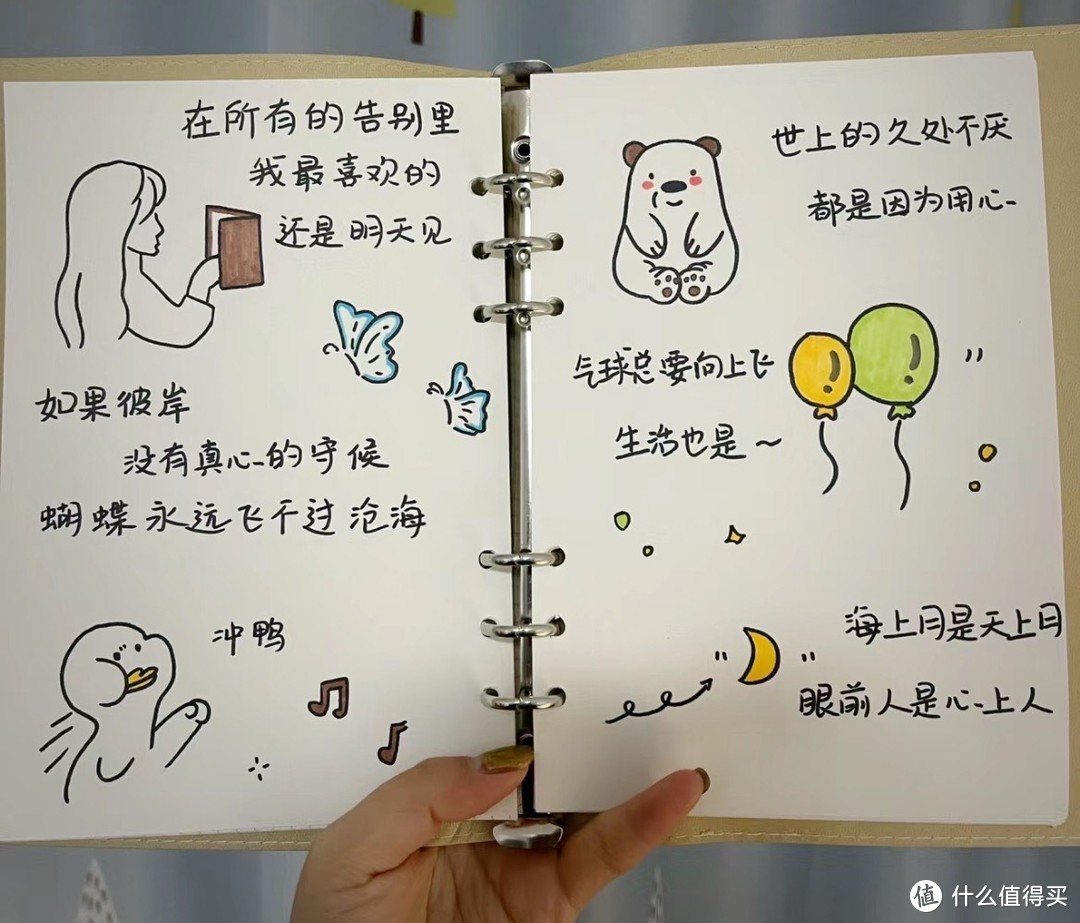 在所有的告别里
我最喜欢的
还是明天见
如果彼岸
没有真心的守候
蝴蝶永远飞不过沧海
冲鸭
世上的久处不厌
都是因为用心
气球总要向上飞
生活也是~
海上月是天上月
眼前人是心上人
值 什么值得买